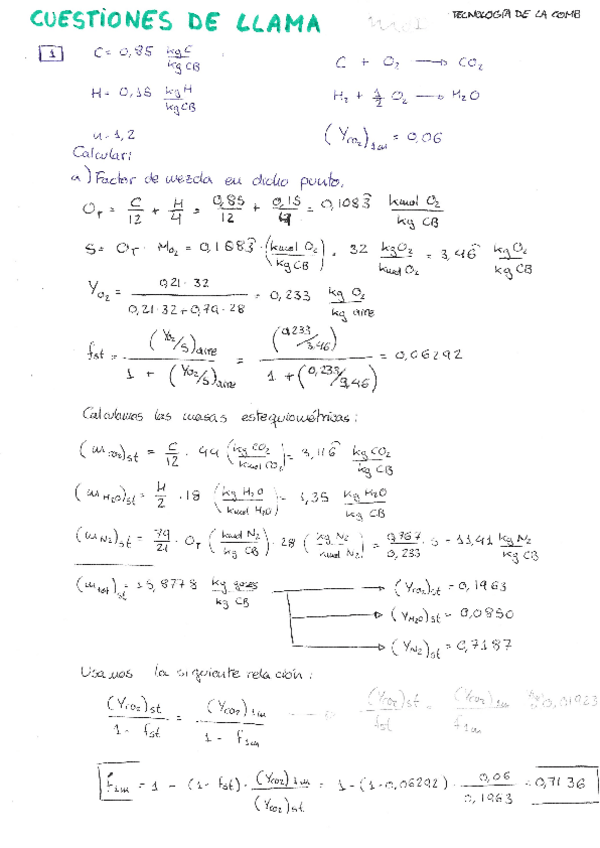 CUESTIONES DE LLAMA
TECNOLOGÍA DE LA COMB
1 C = 0,85 kgC/kgCB
C + O₂ → CO₂
H = 0,15 kgH/kgCB
H₂ + 1/2 O₂ → H₂O
n = 1,2
(Y_CO₂)_1m = 0,06
Calcular:
a) Factor de mezcla en dicho punto.
O_T = C/12 + H/4 = 0,85/12 + 0,15/4 = 0,1083 kmol O₂/kg CB
S = O_T · M_O₂ = 0,1083 · (kmol O₂/kg CB) · 32 kg O₂/kmol O₂ = 3,46 kg O₂/kg CB
Y_O₂ = 0,21 · 32 / 0,21·32 + 0,79·28 = 0,233 kg O₂/kg aire
f_st = (Y_O₂/S)_aire / 1 + (Y_O₂/S)_aire = (0,233/3,46) / 1 + (0,233/3,46) = 0,06292
Calculamos las masas estequiométricas:
(m_CO₂)_st = C/12 · 44 (kg CO₂/kmol CO₂) = 3,116 kg CO₂/kg CB
(m_H₂O)_st = H/2 · 18 (kg H₂O/kmol H₂O) = 1,35 kg H₂O/kg CB
(m_N₂)_st = 79/21 · O_T (kmol N₂/kg CB) · 28 (kg N₂/kmol N₂) = 0,767/0,233 · S = 11,41 kg N₂/kg CB
(m_tot)_st = 15,8778 kg gases/kg CB
(Y_CO₂)_st = 0,1963
(Y_H₂O)_st = 0,0850
(Y_N₂)_st = 0,7187
Usamos la siguiente relación:
(Y_CO₂)_st / 1 - f_st = (Y_CO₂)_1m / 1 - f_1m
(Y_CO₂)_st / f_st = (Y_CO₂)_1m / f_1m
f_1m = 1 - (1 - f_st) · (Y_CO₂)_1m/(Y_CO₂)_st = 1 - (1 - 0,06292) · 0,06/0,1963 = 0,7136